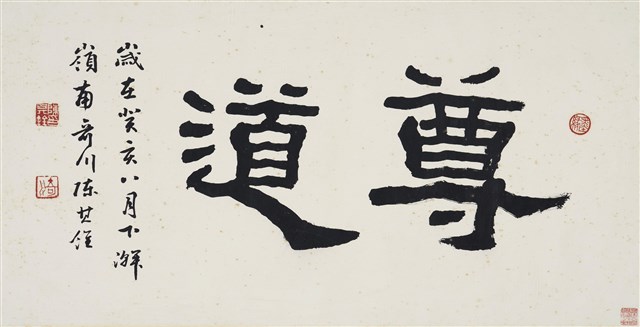 尊道
歲在癸亥八月下澣
嶺南奇川陈其銓